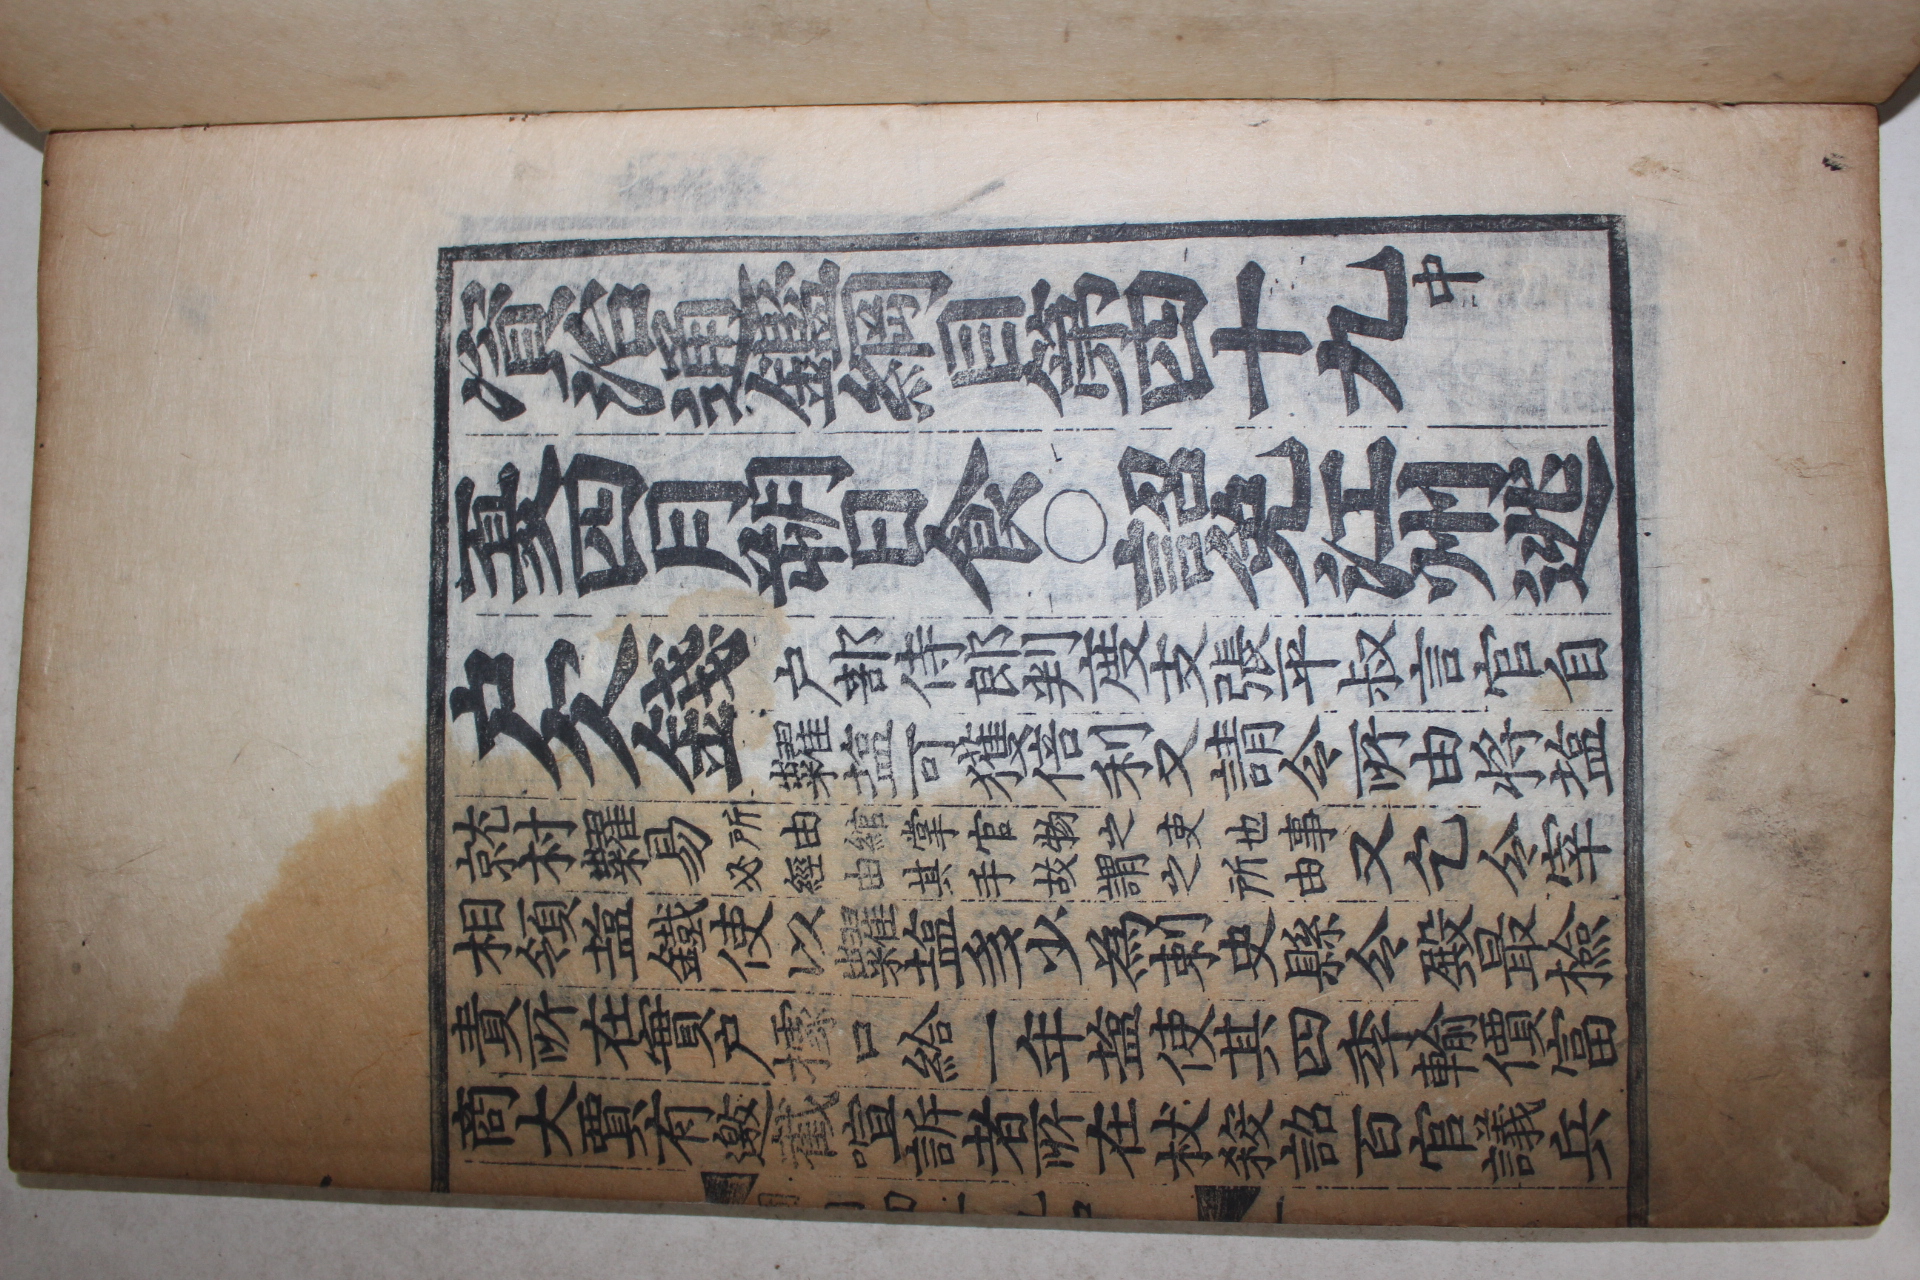 資治通鑑綱目第四十九中
夏四月朔日食○詔免江州逃
户欠錢
户部侍郎判度支張平叔言官自
糶塩可獲倍利又請令所由將塩
就村糶易
所由綰掌官物之吏也事
必經由其手故謂之所由
又乞令宰
相領塩鐵使以糶塩多少為刺史縣令殿最檢
責所在實户據口給一年塩使其四季輸價富
商大賈有邀截喧訴者所在杖殺詔百官議兵